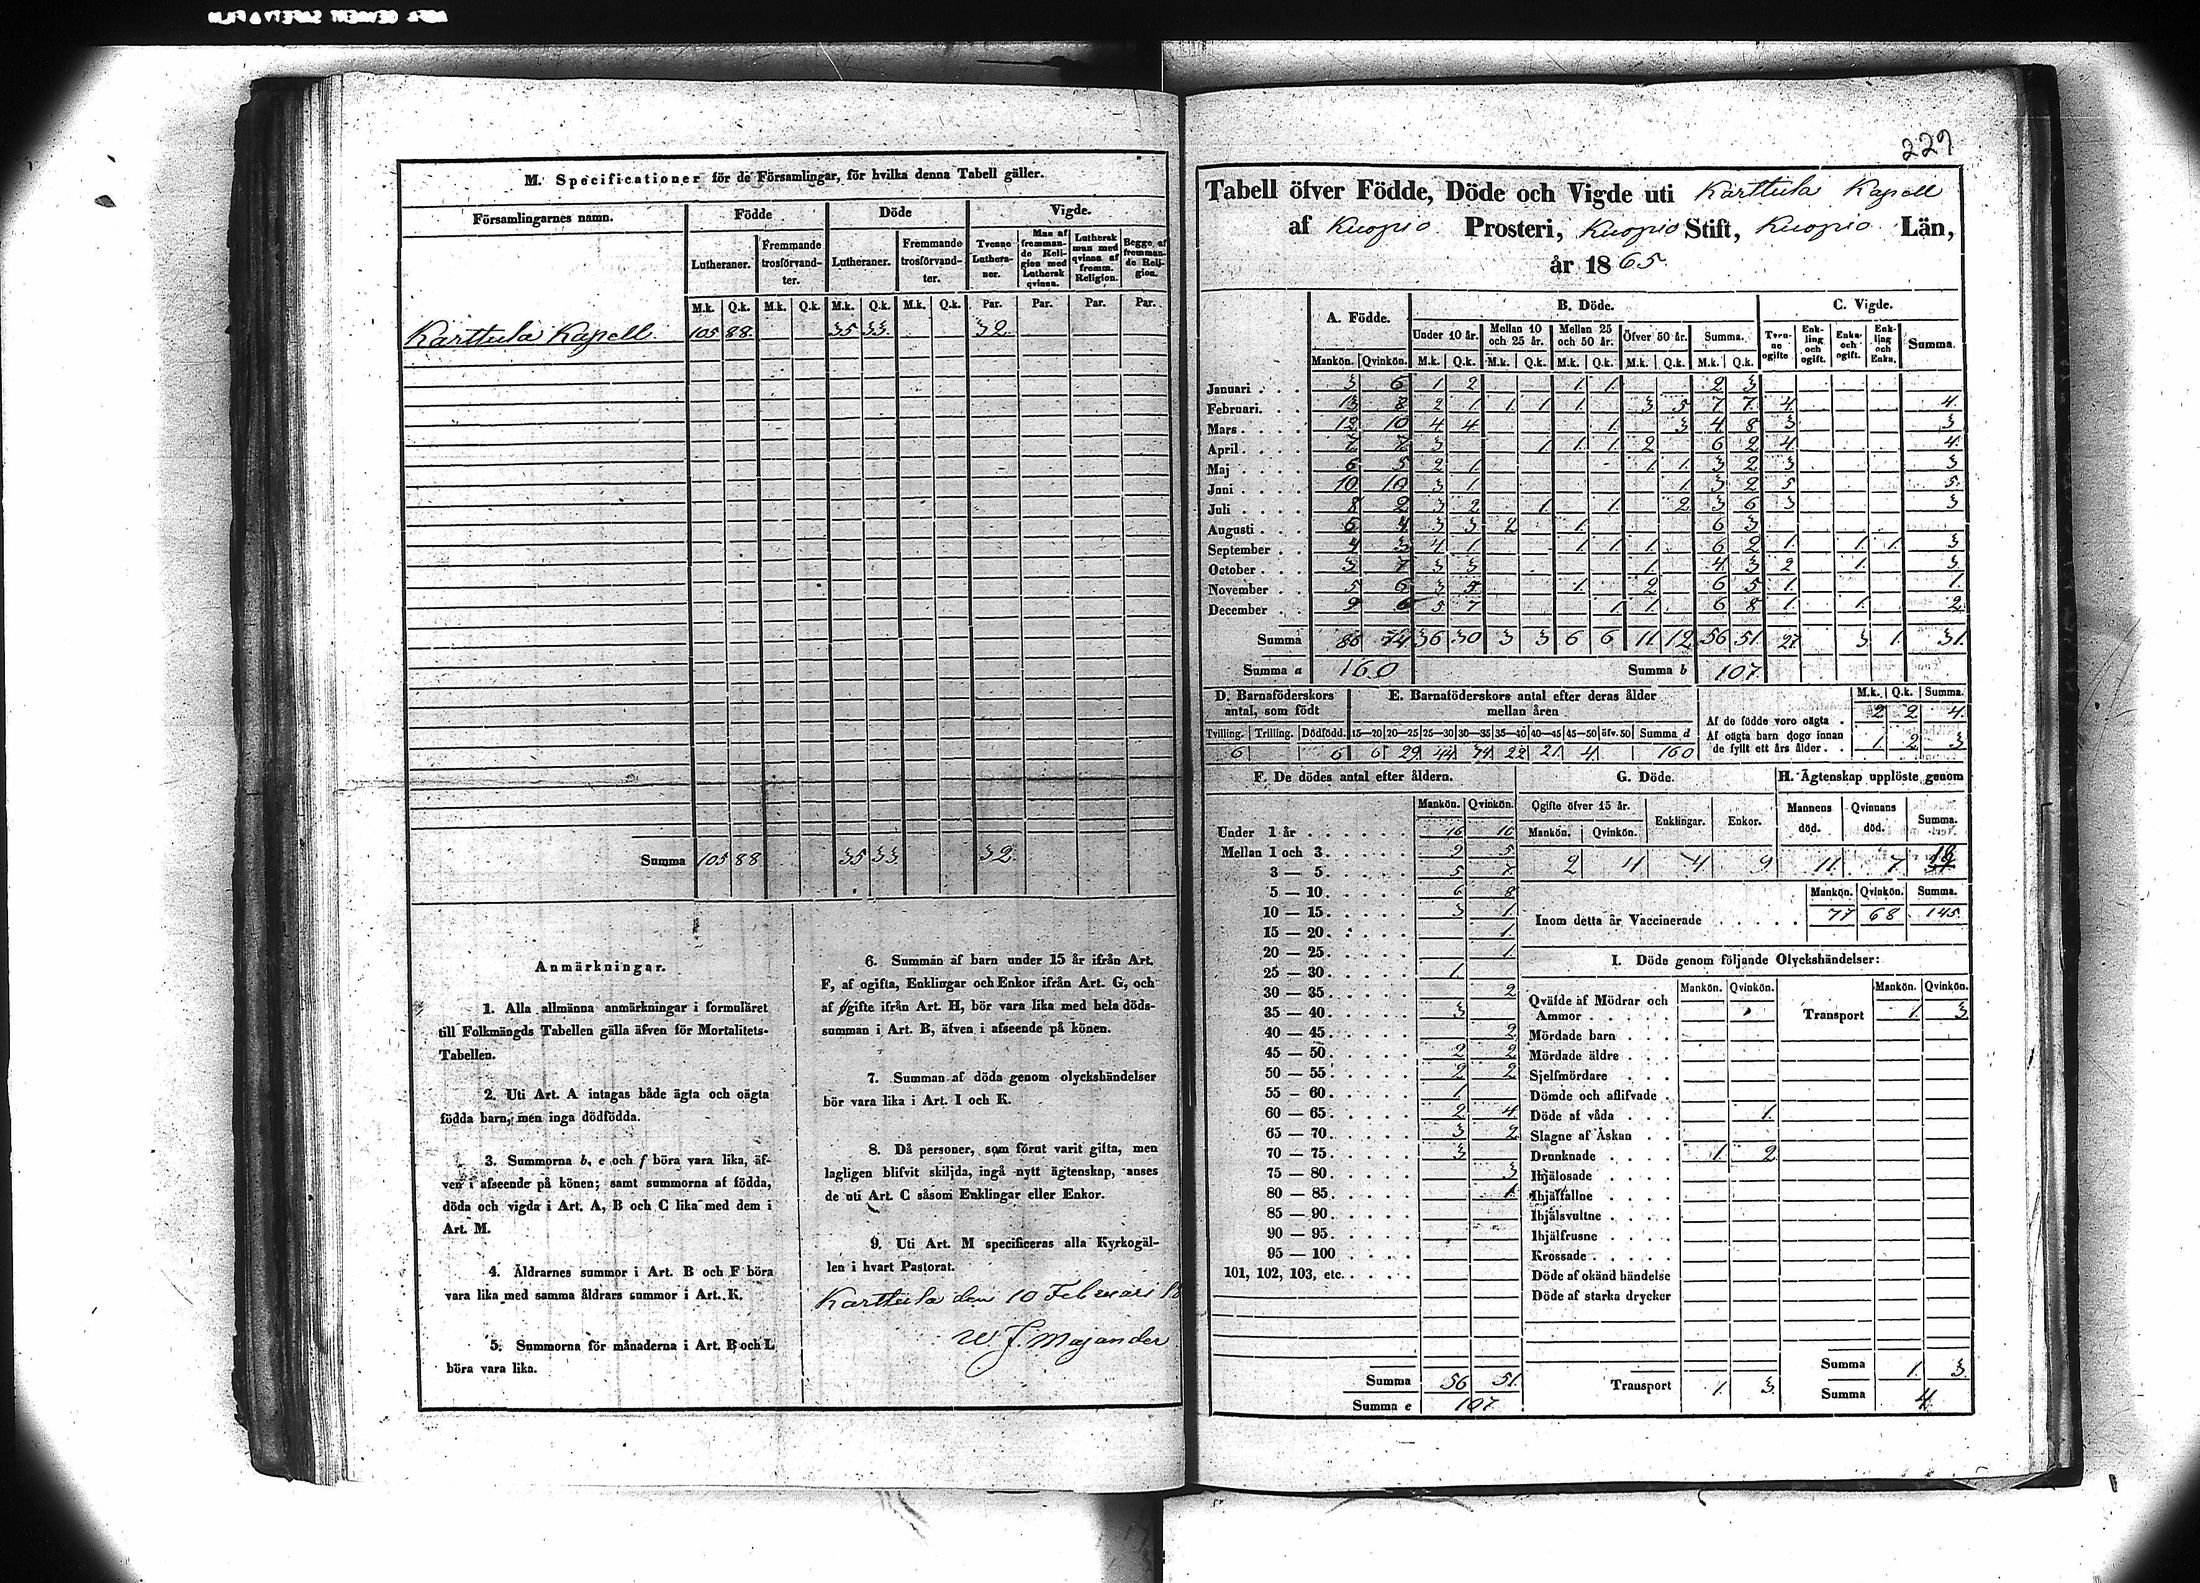 M. Specificationer för de Församlingar, för hvilka denna Tabell gäller.
Församlingarnes namn. Födde Döde Vigde.
Lutheraner. Fremmande trosförvandter. Lutheraner. Fremmande trosförvandter. Tvenne Lutheraner. Man af fremmande Religion med Luthersk qvinna. Luthersk man med qvinna af fremm. Religion. Begge af fremmande Religion.
M.k. Q.k. M.k. Q.k. M.k. Q.k. M.k. Q.k. Par. Par. Par. Par.
Karttula Kapell. 105 88 35 33 32
Summa 105 88 35 33 32
Anmärkningar.
1. Alla allmänna anmärkningar i formuläret
till Folkmängds Tabellen gälla äfven för Mortalitets-
Tabellen.
2. Uti Art. A intagas både ägta och oägta
födda barn, men inga dödfödda.
3. Summorna b, e och f böra vara lika, äf-
ven i afseende på könen; samt summorna af födda,
döda och vigda i Art. A, B och C lika med dem i
Art. M.
4. Åldrarnes summor i Art. B och F böra
vara lika med samma åldrars summor i Art. K.
5. Summorna för månaderna i Art. B och L
böra vara lika.
6. Summan af barn under 15 år ifrån Art.
F, af ogifta, Enklingar och Enkor ifrån Art. G, och
af gifte ifrån Art. H, bör vara lika med hela döds-
summan i Art. B, äfven i afseende på könen.
7. Summan af döda genom olyckshändelser
bör vara lika i Art. I och K.
8. Då personer, som förut varit gifta, men
lagligen blifvit skiljda, ingå nytt ägtenskap, anses
de uti Art. C såsom Enklingar eller Enkor.
9. Uti Art. M specificeras alla Kyrkogäl-
len i hvart Pastorat.
Karttula den 10 Februari
W. J. Majander
229
Tabell öfver Födde, Döde och Vigde uti Karttula Kapell
af Kuopio Prosteri, Kuopio Stift, Kuopio Län,
år 1865.
A. Födde. B. Döde. C. Vigde.
Under 10 år. Mellan 10 och 25 år. Mellan 25 och 50 år. Öfver 50 år. Summa. Tvenne ogifte Enkling och ogift. Enka och ogift. Enkling och Enka. Summa.
Mankön. Qvinkön. M.k. Q.k. M.k. Q.k. M.k. Q.k. M.k. Q.k. M.k. Q.k.
Januari 3 6 1 2 1 1 2 3
Februari 13 8 2 1 1 1 1 3 5 7 7 4 4
Mars 12 10 4 4 1 3 4 8 3 3
April 7 7 3 1 1 1 2 6 2 4 4
Maj 6 5 2 1 1 1 3 2 3 3
Juni 10 10 3 1 1 3 2 5 5
Juli 8 2 3 2 1 1 2 3 6 3 3
Augusti 6 4 3 3 2 1 6 3
September 4 3 4 1 1 1 1 6 2 1 1 1 3
October 3 7 3 3 1 4 3 2 1 3
November 5 6 3 5 1 2 6 5 1 1
December 9 6 5 7 1 1 6 8 1 1 2
Summa 86 74 36 30 3 3 6 6 11 12 56 51 27 3 1 31
Summa a 160 Summa b 107
D. Barnaföderskors antal, som födt
E. Barnaföderskors antal efter deras ålder mellan åren
M.k. Q.k. Summa.
Af de födde voro oägta 2 2 4
Af oägta barn dogo innan de fyllt ett års ålder 1 2 3
Tvilling. Trilling. Dödfödd. 15—20 20—25 25—30 30—35 35—40 40—45 45—50 öfv. 50 Summa d
6 6 6 29 44 34 22 21 4 160
F. De dödes antal efter åldern.
Mankön. Qvinkön.
Under 1 år 16 10
Mellan 1 och 3. 2 5
3 — 5. 5 7
5 — 10. 6 8
10 — 15. 3 1
15 — 20. 1
20 — 25. 1
25 — 30. 1
30 — 35. 2
35 — 40. 3
40 — 45. 2
45 — 50. 2 2
50 — 55. 2 2
55 — 60. 1
60 — 65. 2 4
65 — 70. 3 2
70 — 75. 3
75 — 80. 3
80 — 85. 1
85 — 90.
90 — 95.
95 — 100
101, 102, 103, etc.
Summa 56 51
Summa e 107
G. Döde.
Ogifte öfver 15 år. Enklingar. Enkor.
Mankön. Qvinkön.
2 4 4 9
H. Ägtenskap upplöste genom
Mannens död. Qvinnans död. Summa.
11 7 18
Mankön. Qvinkön. Summa.
Inom detta år Vaccinerade 77 68 145
I. Döde genom följande Olyckshändelser:
Mankön. Qvinkön. Mankön. Qvinkön.
Qväfde af Mödrar och Ammor Transport 1 3
Mördade barn
Mördade äldre
Sjelfmördare
Dömde och aflifvade
Döde af våda 1
Slagne af Åskan
Drunknade 1 2
Ihjälosade
Ihjälfallne
Ihjälsvultne
Ihjälfrusne
Krossade
Döde af okänd händelse
Döde af starka drycker
Transport 1 3
Summa 1 3
Summa 4